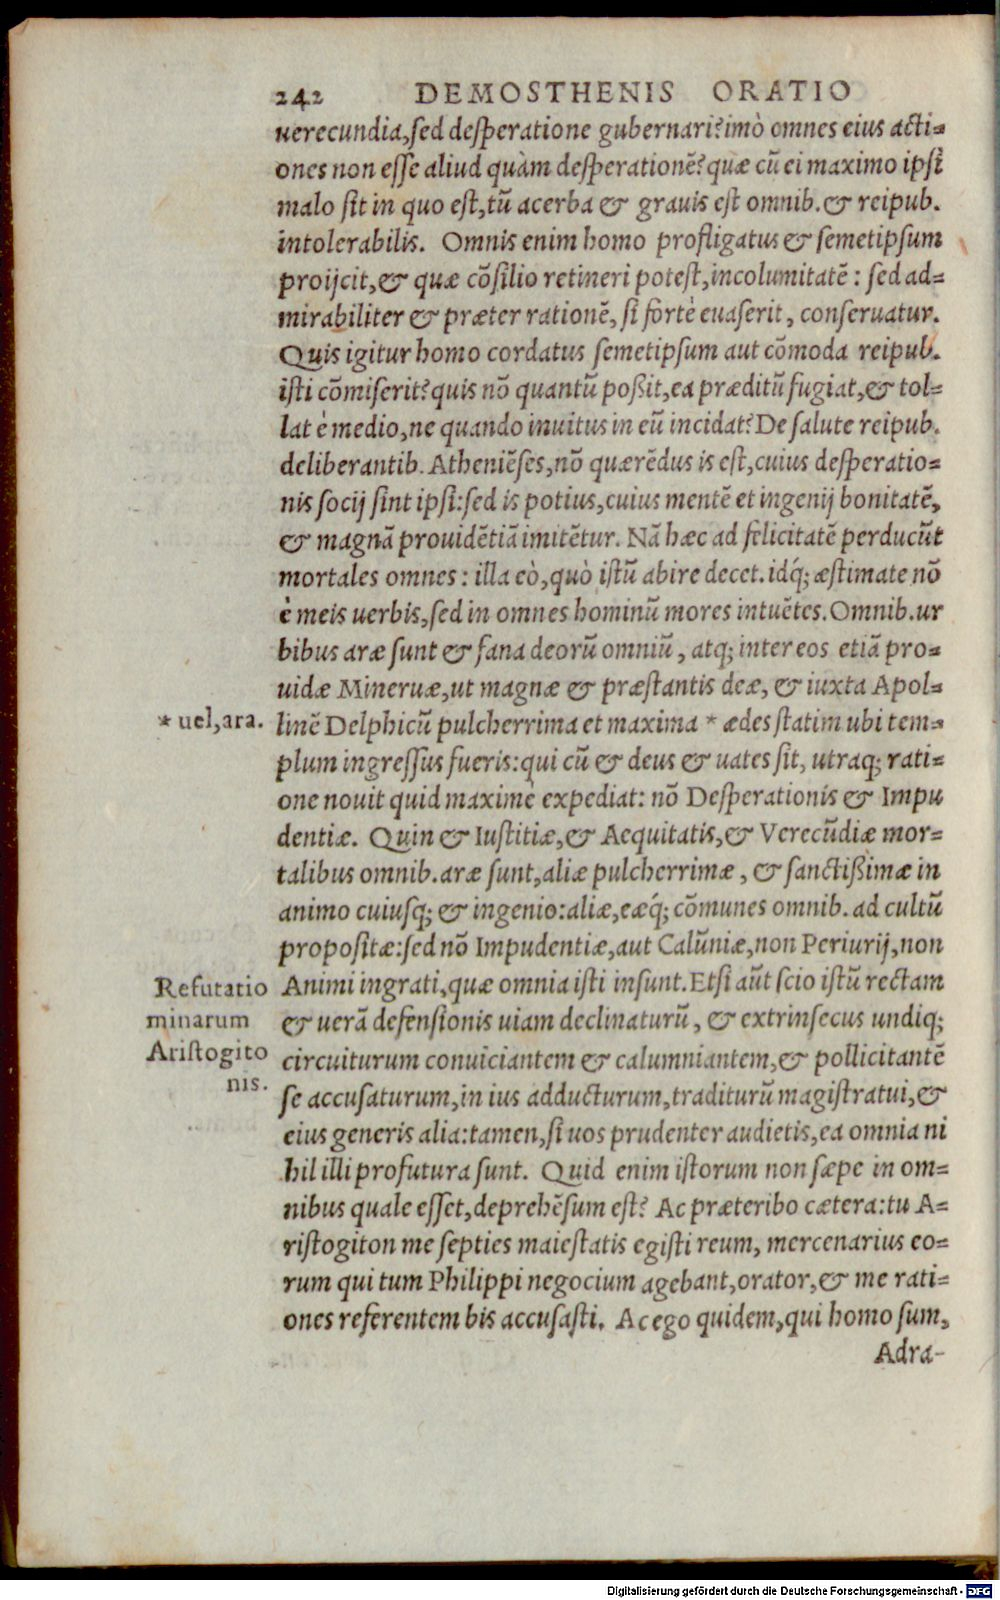 242 DEMOSTHENIS ORATIO
uerecundia, sed desperatione gubernari? imò omnes eius acti-
ones non esse aliud quàm desperationē? quæ cū ei maximo ipsi
malo sit in quo est, tū acerba & grauis est omnib. & reipub.
intolerabilis. Omnis enim homo profligatus & semetipsum
proijcit, & quæ cōsilio retineri potest, incolumitatē: sed ad-
mirabiliter & præter rationē, si fortè euaserit, conseruatur.
Quis igitur homo cordatus semetipsum aut cōmoda reipub.
isti cōmiserit? quis nō quantū poßit, ea præditū fugiat, & tol-
lat è medio, ne quando inuitus in eū incidat? De salute reipub.
deliberantib. Atheniēses, nō quærēdus is est, cuius desperatio-
nis socij sint ipsi: sed is potius, cuius mentē et ingenij bonitatē,
& magnā prouidētiā imitētur. Nā hæc ad felicitatē perducūt
mortales omnes: illa eò, quò istū abire decet. idq́; æstimate nō
è meis uerbis, sed in omnes hominū mores intuētes. Omnib. ur
bibus aræ sunt & fana deorū omniū, atq; inter eos etiā pro-
uidæ Mineruæ, ut magnæ & præstantis deæ, & iuxta Apol-
* uel, ara.
linē Delphicū pulcherrima et maxima * ædes statim ubi tem-
plum ingressus fueris: qui cū & deus & uates sit, utraq; rati-
one nouit quid maximè expediat: nō Desperationis & Impu
dentiæ. Quin & Iustitiæ, & Aequitatis, & Verecūdiæ mor-
talibus omnib. aræ sunt, aliæ pulcherrimæ, & sanctißimæ in
animo cuiusq; & ingenio: aliæ, eæq́; cōmunes omnib. ad cultū
propositæ: sed nō Impudentiæ, aut Calūniæ, non Periurij, non
Refutatio
minarum
Aristogito
nis.
Animi ingrati, quæ omnia isti insunt. Etsi aūt scio istū rectam
& uerā defensionis uiam declinaturū, & extrinsecus undiq;
circuiturum conuiciantem & calumniantem, & pollicitantē
se accusaturum, in ius adducturum, traditurū magistratui, &
eius generis alia: tamen, si uos prudenter audietis, ea omnia ni
hil illi profutura sunt. Quid enim istorum non sæpe in om-
nibus quale esset, deprehēsum est? Ac præteribo cætera: tu A-
ristogiton me septies maiestatis egisti reum, mercenarius eo-
rum qui tum Philippi negocium agebant, orator, & me rati-
ones referentem bis accusasti. Ac ego quidem, qui homo sum,
Adra-
Digitalisierung gefördert durch die Deutsche Forschungsgemeinschaft - DFG